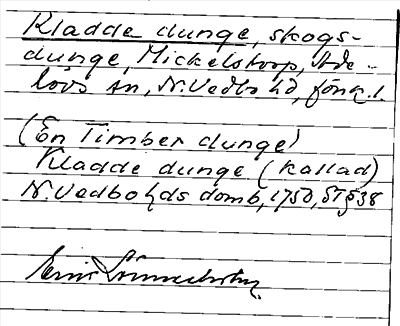 Kladde dunge, skogs-
dunge, Mickelstorp, Ade-
lövs sn, N. Vedbo hd, Jönk. l.
(En Timber dunge)
Kladde dunge (kallad)
N. Vedbo hds domb, 1750, ST § 38